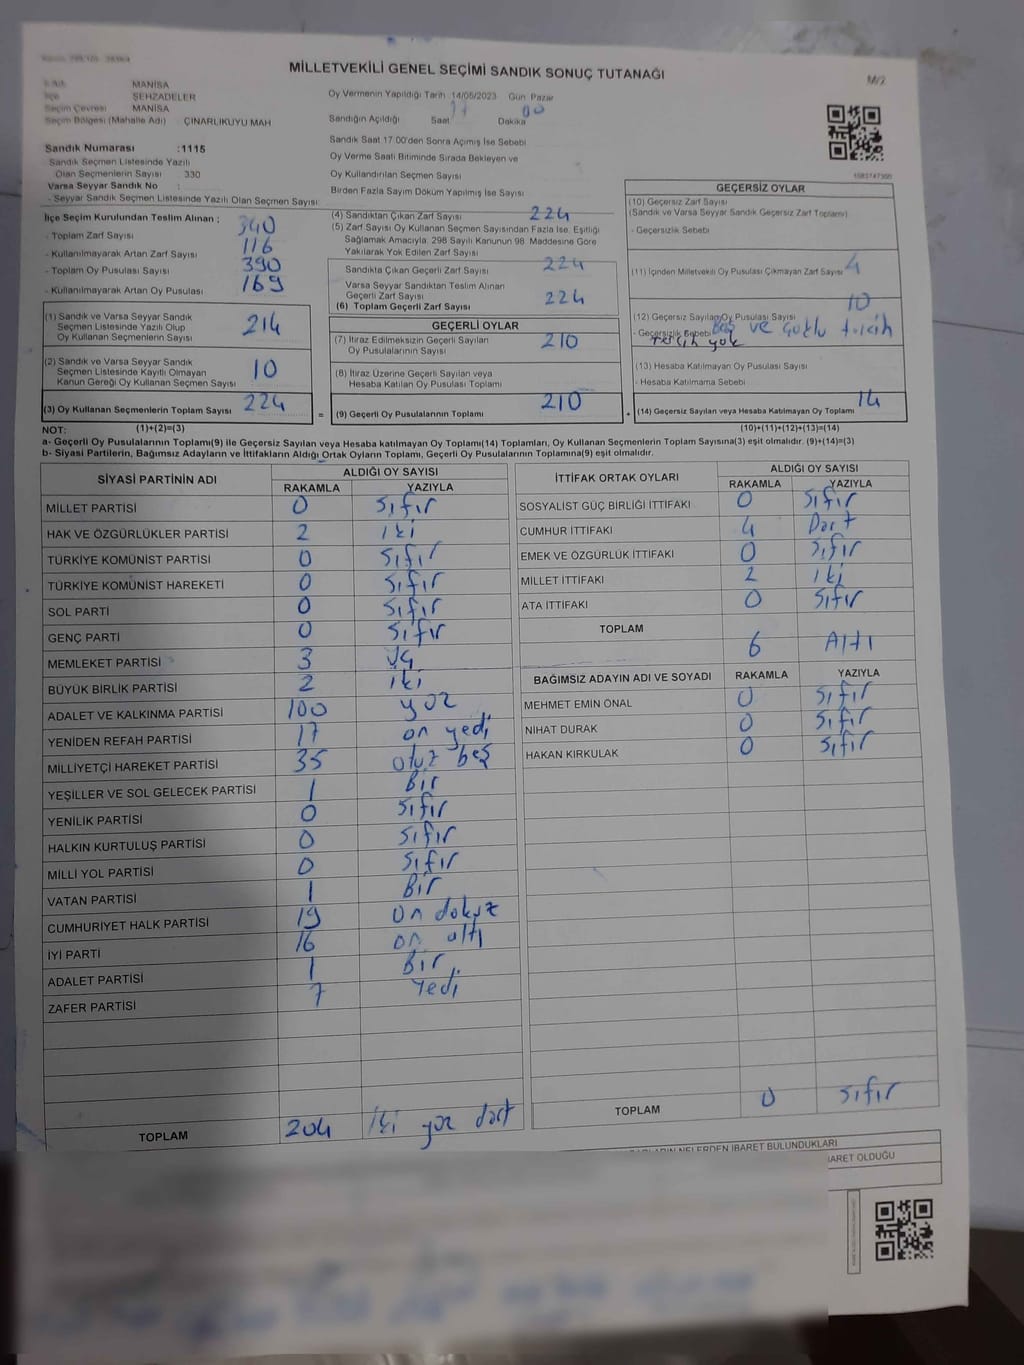 MİLLETVEKİLİ GENEL SEÇİMİ SANDIK SONUÇ TUTANAĞI
M/2
MANİSA
İlçe ŞEHZADELER
Seçim Çevresi MANİSA
Seçim Bölgesi (Mahalle Adı) ÇINARLIKUYU MAH
Sandık Numarası :1115
Sandık Seçmen Listesinde Yazılı
Olan Seçmenlerin Sayısı : 330
Varsa Seyyar Sandık No :
- Seyyar Sandık Seçmen Listesinde Yazılı Olan Seçmen Sayısı:
Oy Vermenin Yapıldığı Tarih 14/05/2023 Gün Pazar
Sandığın Açıldığı Saat 17 Dakika 00
Sandık Saat 17.00'den Sonra Açımış İse Sebebi
Oy Verme Saati Bitiminde Sırada Bekleyen ve
Oy Kullandırılan Seçmen Sayısı
Birden Fazla Sayım Döküm Yapılmış İse Sayısı
İlçe Seçim Kurulundan Teslim Alınan ;
- Toplam Zarf Sayısı 340
- Kullanılmayarak Artan Zarf Sayısı 116
- Toplam Oy Pusulası Sayısı 390
- Kullanılmayarak Artan Oy Pusulası 169
(1) Sandık ve Varsa Seyyar Sandık
Seçmen Listesinde Yazılı Olup
Oy Kullanan Seçmenlerin Sayısı 214
(2) Sandık ve Varsa Seyyar Sandık
Seçmen Listesinde Kayıtlı Olmayan
Kanun Gereği Oy Kullanan Seçmen Sayısı 10
(3) Oy Kullanan Seçmenlerin Toplam Sayısı 224
(1)+(2)=(3)
(4) Sandıktan Çıkan Zarf Sayısı 224
(5) Zarf Sayısı Oy Kullanan Seçmen Sayısından Fazla İse, Eşitliği
Sağlamak Amacıyla, 298 Sayılı Kanunun 98. Maddesine Göre
Yakılarak Yok Edilen Zarf Sayısı
Sandıkta Çıkan Geçerli Zarf Sayısı 224
Varsa Seyyar Sandıktan Teslim Alınan
Geçerli Zarf Sayısı
(6) Toplam Geçerli Zarf Sayısı 224
GEÇERLİ OYLAR
(7) İtiraz Edilmeksizin Geçerli Sayılan
Oy Pusulalarının Sayısı 210
(8) İtiraz Üzerine Geçerli Sayılan veya
Hesaba Katılan Oy Pusulası Toplamı
= (9) Geçerli Oy Pusulalarının Toplamı 210
GEÇERSİZ OYLAR
(10) Geçersiz Zarf Sayısı
(Sandık ve Varsa Seyyar Sandık Geçersiz Zarf Toplamı)
- Geçersizlik Sebebi
(11) İçinden Milletvekili Oy Pusulası Çıkmayan Zarf Sayısı 4
(12) Geçersiz Sayılan Oy Pusulası Sayısı 10
- Geçersizlik Sebebi Boş ve Çoklu tercih
tercih yok
(13) Hesaba Katılmayan Oy Pusulası Sayısı
- Hesaba Katılmama Sebebi
+ (14) Geçersiz Sayılan veya Hesaba Katılmayan Oy Toplamı 14
(10)+(11)+(12)+(13)=(14)
NOT:
a- Geçerli Oy Pusulalarının Toplamı(9) ile Geçersiz Sayılan veya Hesaba katılmayan Oy Toplamı(14) Toplamları, Oy Kullanan Seçmenlerin Toplam Sayısına(3) eşit olmalıdır. (9)+(14)=(3)
b- Siyasi Partilerin, Bağımsız Adayların ve İttifakların Aldığı Ortak Oyların Toplamı, Geçerli Oy Pusulalarının Toplamına(9) eşit olmalıdır.
SİYASİ PARTİNİN ADI ALDIĞI OY SAYISI
RAKAMLA YAZIYLA
MİLLET PARTİSİ 0 Sıfır
HAK VE ÖZGÜRLÜKLER PARTİSİ 2 iki
TÜRKİYE KOMÜNİST PARTİSİ 0 Sıfır
TÜRKİYE KOMÜNİST HAREKETİ 0 Sıfır
SOL PARTİ 0 Sıfır
GENÇ PARTİ 0 Sıfır
MEMLEKET PARTİSİ 3 üç
BÜYÜK BİRLİK PARTİSİ 2 iki
ADALET VE KALKINMA PARTİSİ 100 yüz
YENİDEN REFAH PARTİSİ 17 on yedi
MİLLİYETÇİ HAREKET PARTİSİ 35 otuz beş
YEŞİLLER VE SOL GELECEK PARTİSİ 1 Bir
YENİLİK PARTİSİ 0 Sıfır
HALKIN KURTULUŞ PARTİSİ 0 Sıfır
MİLLİ YOL PARTİSİ 0 Sıfır
VATAN PARTİSİ 1 Bir
CUMHURİYET HALK PARTİSİ 19 on dokuz
İYİ PARTİ 16 on altı
ADALET PARTİSİ 1 Bir
ZAFER PARTİSİ 7 Yedi
TOPLAM 204 iki yüz dört
İTTİFAK ORTAK OYLARI ALDIĞI OY SAYISI
RAKAMLA YAZIYLA
SOSYALİST GÜÇ BİRLİĞİ İTTİFAKI 0 Sıfır
CUMHUR İTTİFAKI 4 Dört
EMEK VE ÖZGÜRLÜK İTTİFAKI 0 Sıfır
MİLLET İTTİFAKI 2 iki
ATA İTTİFAKI 0 Sıfır
TOPLAM 6 Altı
BAĞIMSIZ ADAYIN ADI VE SOYADI RAKAMLA YAZIYLA
MEHMET EMİN ÖNAL 0 Sıfır
NİHAT DURAK 0 Sıfır
HAKAN KIRKULAK 0 Sıfır
TOPLAM 0 Sıfır
NELERDEN İBARET BULUNDUKLARI
İBARET OLDUĞU